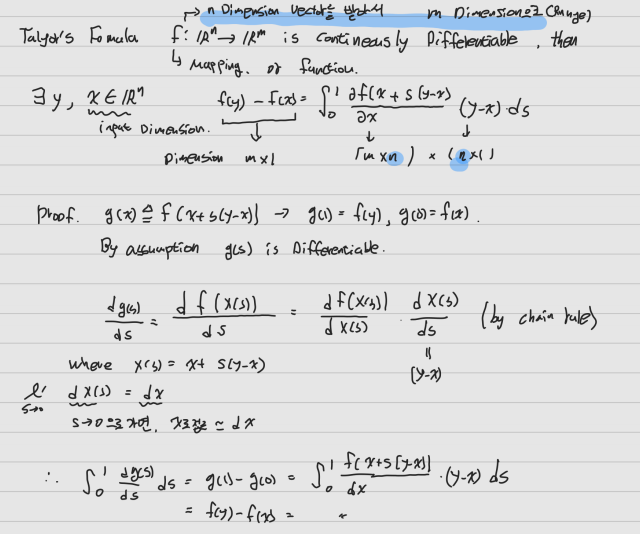 n Dimension vector을 받아서 m Dimension으로 (Range)
Talyor's Formula f: ℝⁿ → ℝᵐ is Continuously Differentiable, then
↳ mapping, or function.
∃ y, x ∈ ℝⁿ f(y) - f(x) = ∫₀¹ ∂f(x + s(y-x)) / ∂x (y-x) · ds
input Dimension.
Dimension m×1 [m×n] × (n×1)
Proof. g(x) ≜ f(x+s(y-x)) → g(1) = f(y), g(0) = f(x).
By assumption g(s) is Differentiable.
dg(s)/ds = d f(X(s))/ds = d f(X(s))/d X(s) · d X(s)/ds (by chain rule)
where X(s) = x + s(y-x)
(y-x)
s→0 d X(s) = dx
s→0 ≃ dx
∴ ∫₀¹ dg(s)/ds ds = g(1) - g(0) = ∫₀¹ f(x+s(y-x))/dx · (y-x) ds
= f(y) - f(x) =